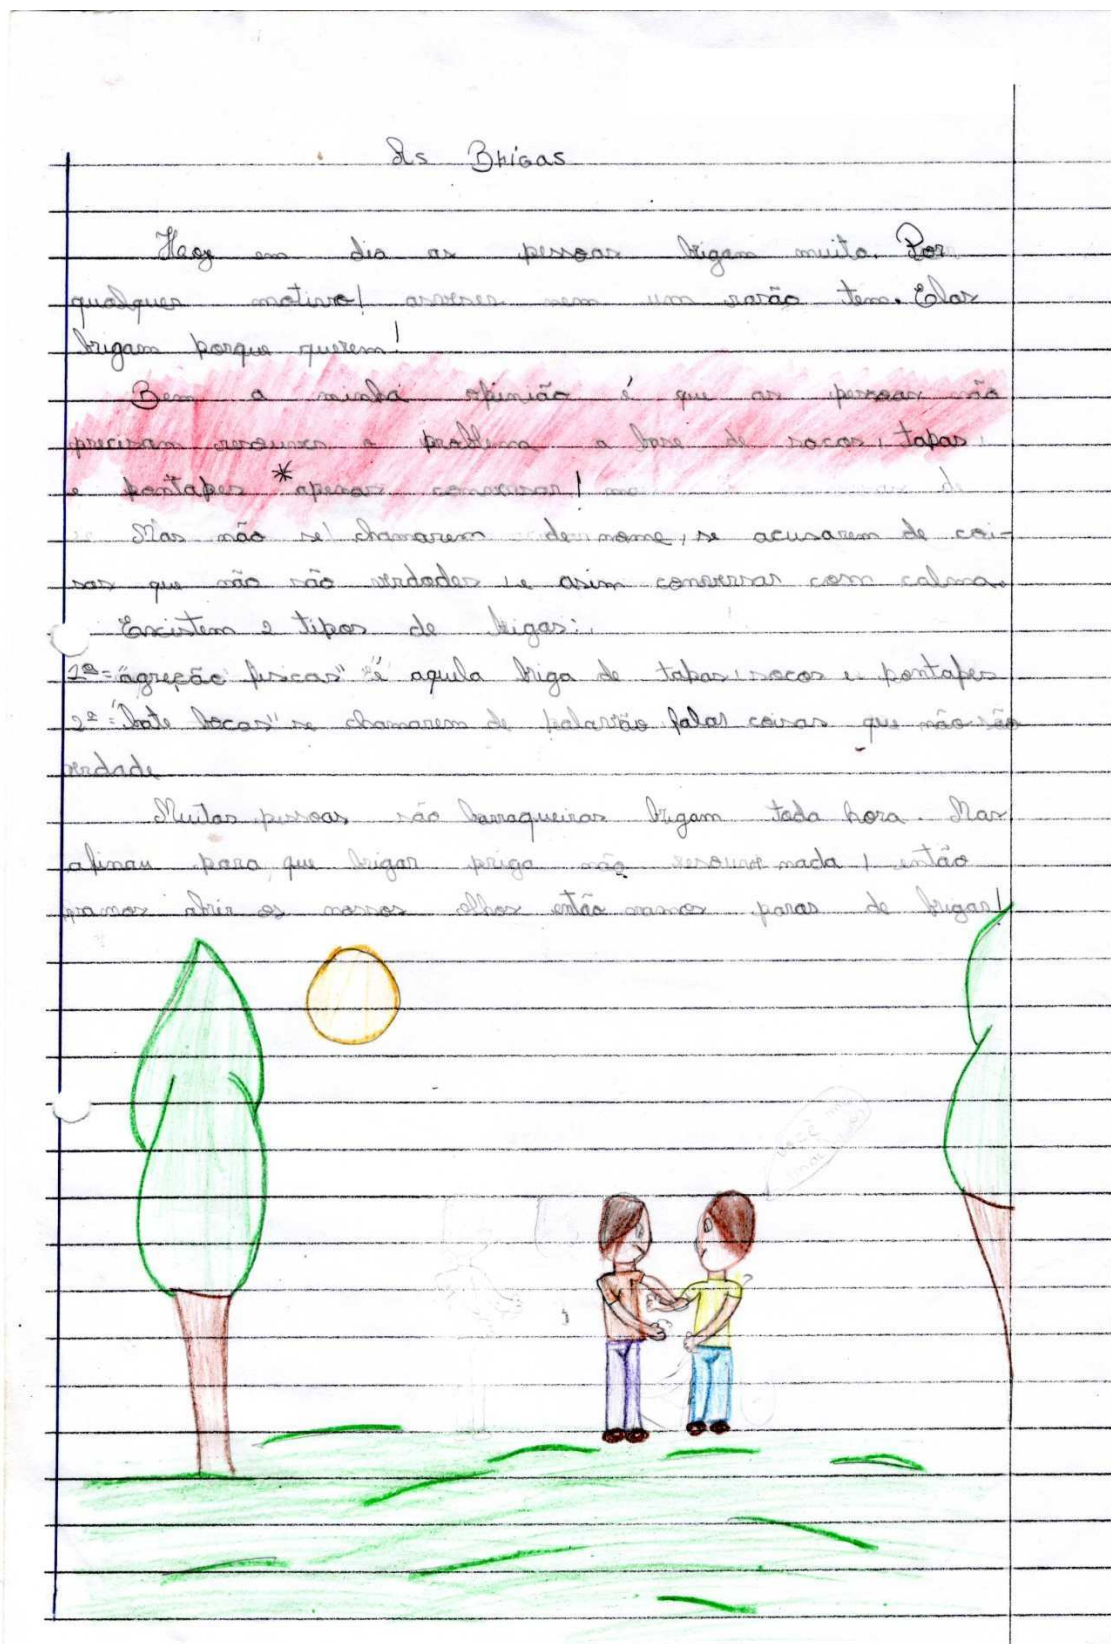 As Brigas
Hoog em dia as pessoas brigam muito. Por
qualquer motivo! asveses nem um rasão tem. Elas
brigam porque querem!
Bem a minha opinião é que as pessoas não
precisam resouver o problema a base de socos, tapas,
e pontapes * apenas conversar!
Mas não se chamarem de nome, se acusarem de coi-
sas que não são verdades, e asim conversar com calma.
Encistem 2 tipos de brigas:
1º = "agreção fisicas" é aquila briga de tapas, socos e pontapes
2º = "bate bocas" se chamarem de palavrão falar coisas que não são
verdade
Muitas pessoas são barraqueiras brigam toda hora. Mas
afinau para que brigar priga não resouve nada, então
vamos abrir os nossos olhos então vamos paras de brigar!